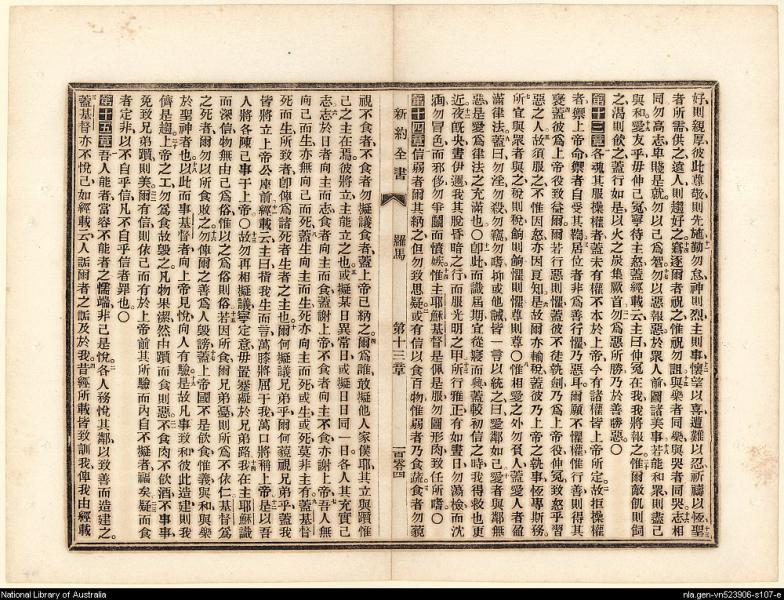 好則親厚彼此尊敬則先施勤勿怠神則烈主則事懷望以喜遭難以忍祈禱以恆聖
者所需供之遠人則趨好之窘逐爾者祝之惟祝勿詛與樂者同樂與哭者同哭志相
同勿高志卑賤是就勿以己爲智勿以惡報惡於衆人前圖諸美事若能和衆則盡己
與和愛友乎毋伸己冤寧待主怒蓋經載云主曰伸冤在我我將報之惟爾敵飢則飼
之渴則飲之蓋行如是以火之炭集厥首勿爲惡所勝乃於善勝惡〇
第十三章各魂其服操權者蓋未有權不本於上帝今有諸權皆上帝所定故拒操權
者禦上帝命禦者自受其鞫居位者非爲善行懼乃惡耳爾願不懼權惟行善則得其
褒蓋彼爲上帝役致益爾爾若行惡則懼蓋彼不徒執劍乃爲上帝役伸冤致怒乎習
惡之人故須服之不惟因怒亦因良知是故爾亦輸稅蓋彼乃上帝之執事恆專斯務
所宜與衆者與之稅則稅餉則餉懼則懼尊則尊〇惟相愛之外勿負人蓋愛人者盈
滿律法蓋曰勿淫勿殺勿竊勿嗜抑或他誡皆一言以統之曰愛鄰如己愛者與鄰無
惡是愛爲律法之充滿也〇卽此而識屆期宜從寢而興蓋較初信之時我得救也更
近夜旣央晝伊邇我其脫昏暗之行而服光明之甲所行雅正有如晝日勿蕩檢而沈
湎勿冒色而邪侈勿爭鬭而憤嫉惟主耶穌基督是佩是服勿圖形肉致任所嗜〇
第十四章信弱者爾其納之但勿致思疑或有信以食百物惟弱者乃食蔬食者勿藐
新約全書 羅馬 第十三章 一百零四
視不食者不食者勿擬議食者蓋上帝已納之爾爲誰敢擬他人家僕耶其立與躓惟
己之主在焉彼將立主能立之也或擬某日異常日或擬日日同一日各人其充實己
志志於日者向主而志食者向主而食蓋謝上帝不食者向主不食亦謝上帝吾人無
向己而生亦無向己而死蓋生向主而生死亦向主而死或生或死莫非主有蓋基督
死而生所致者卽俾爲諸死者生者之主也爾何擬議兄弟乎爾何藐視兄弟乎蓋我
皆將立上帝公座前經載云主曰指我生而言萬膝將屈于我萬口將稱上帝是以吾
人將各陳己事于上帝〇故勿再相擬議寧定意毋置窒礙於兄弟路我在主耶穌識
而深信物無由己爲俗惟以之爲俗則俗若因所食爾兄弟憂則所爲不依仁基督爲
之死者爾勿以所食敗之勿俾爾之善爲人毀謗蓋上帝國不是飲食惟義與和與樂
於聖神者也以此而事基督者向上帝見悅向人有驗是故凡事致和彼此造建則我
儕是趨上帝之工勿爲食故毀之凡物果潔然由躓而食則惡不食肉不飲酒不事事
免致兄弟躓則美爾有信則依己而有於上帝前其所驗而內自不擬者福矣疑而食
者定非以不自乎信凡不自乎信者罪也〇
第十五章吾人能者當容不能者之懦端非己是悅各人務悅其鄰以致善而造建之
蓋基督亦不悅己如經載云人詬爾者之詬及於我昔經所載皆致訓我俾我由經載
National Library of Australia
nla.gen-vn523906-s107-e